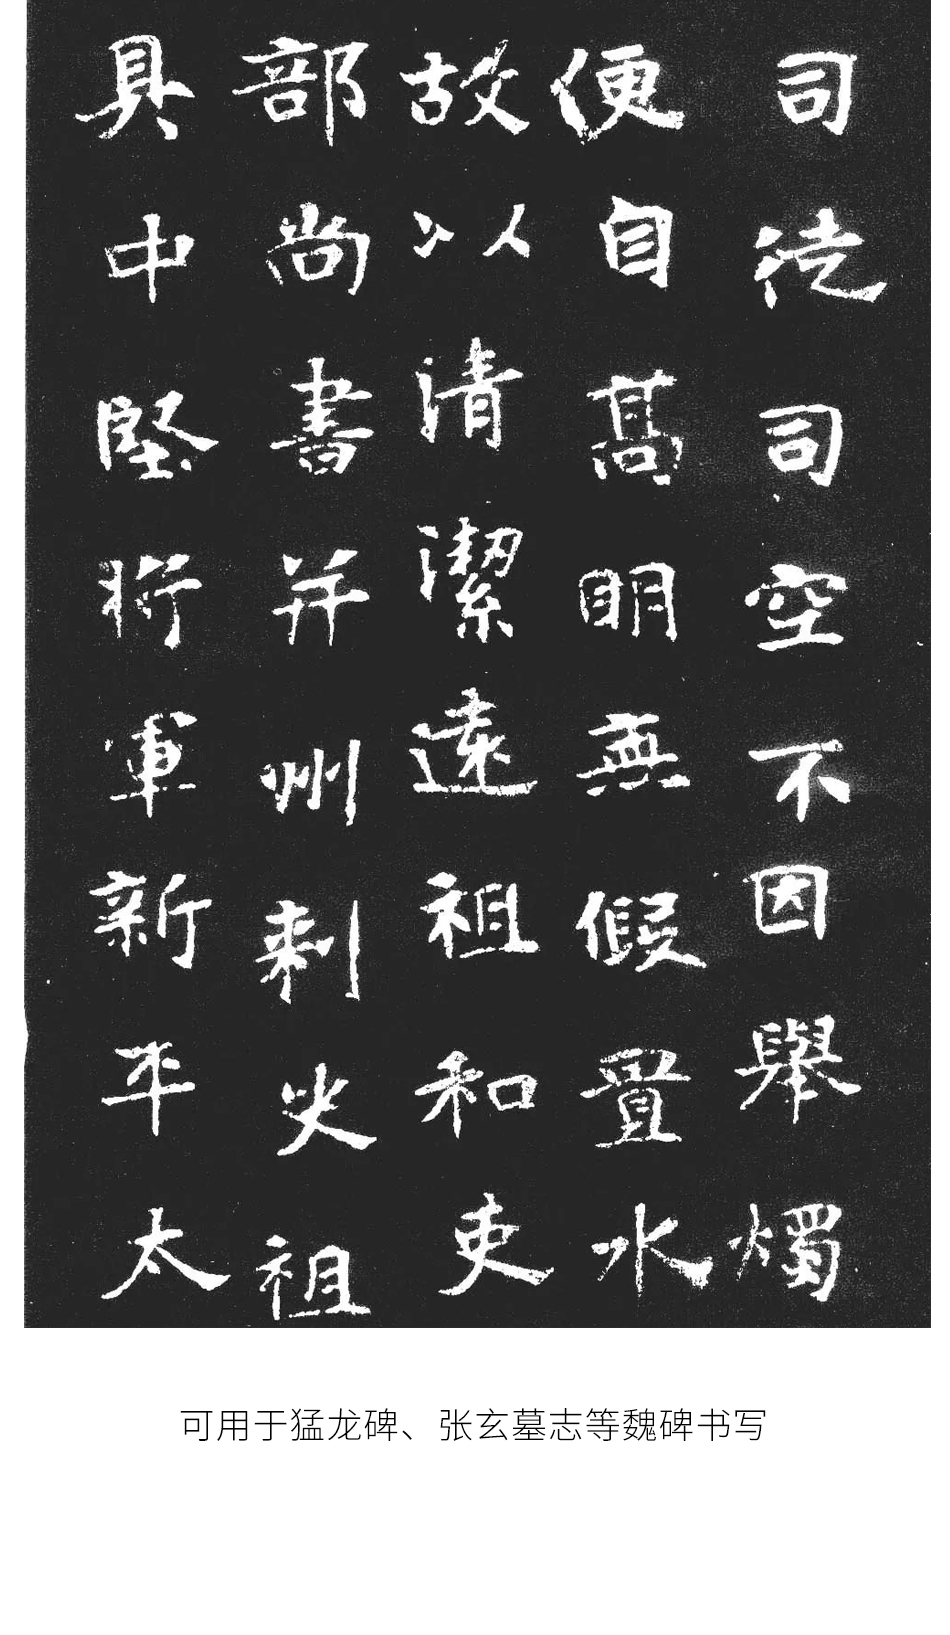 司徒司空不因舉燭
便自高明無假置水
故以清潔遠祖和吏
部尚書并州刺史祖
具中堅將軍新平太
可用于猛龙碑、张玄墓志等魏碑书写